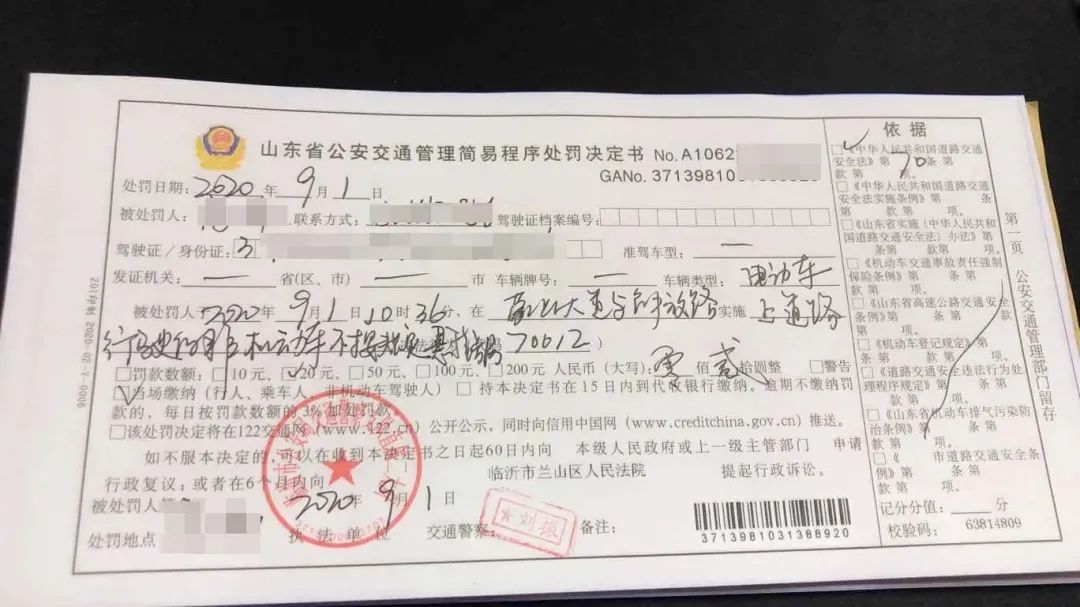 山东省公安交通管理简易程序处罚决定书 No.A1062
GANo. 37139810
处罚日期: 2020 年 9 月 1 日
被处罚人: 联系方式: 驾驶证档案编号:
驾驶证/身份证: 3 准驾车型: 一
发证机关: 一 省(区、市) 一 市 车辆牌号: 一 车辆类型: 电动车
被处罚人于 2020 年 9 月 1 日 10 时 36 分, 在 大道与解放路 实施 上道路
行驶的非机动车不按规定 70612
□罚款数额: □10元、☑20元、□50元、□100元、□200元 人民币(大写): 零 佰 贰 拾圆整 □警告
☑当场缴纳(行人、乘车人、非机动车驾驶人) □持本决定书在15日内到代收银行缴纳。逾期不缴纳罚
款的, 每日按罚款数额的3%加处罚款。
□该处罚决定将在122交通网(www.122.cn)公开公示, 同时向信用中国网(www.creditchina.gov.cn)推送。
如不服本决定的, 可以在收到本决定书之日起60日内向 本级人民政府或上一级主管部门 申请
行政复议; 或者在6个月内向 临沂市兰山区人民法院 提起行政诉讼。
被处罚人签 2020 年 9 月 1 日
处罚地点 执法单位 交通警察: ★刘振 备注:
3713981031388920
依据
☑《中华人民共和国道路交通
安全法》第 70 条 第
款 第 项。
□《中华人民共和国道路交通
安全法实施条例》第 条 第
款 第 项。
□《山东省实施〈中华人民共和
国道路交通安全法〉办法》第
条第 款第 项。
□《机动车交通事故责任强制
保险条例》第 条第 款。
□《山东省高速公路交通安全
条例》第 条第 款第 项。
□《机动车登记规定》第
条第 款第 项。
□《道路交通安全违法行为处
理程序规定》第 条第 款。
□《山东省机动车排气污染防
治条例》第 条第 款。
□《 市道路交通安全条
例》第 条第
款第 项。
记分分值: 分
校验码: 63814809
第一页 公安交通管理部门留存